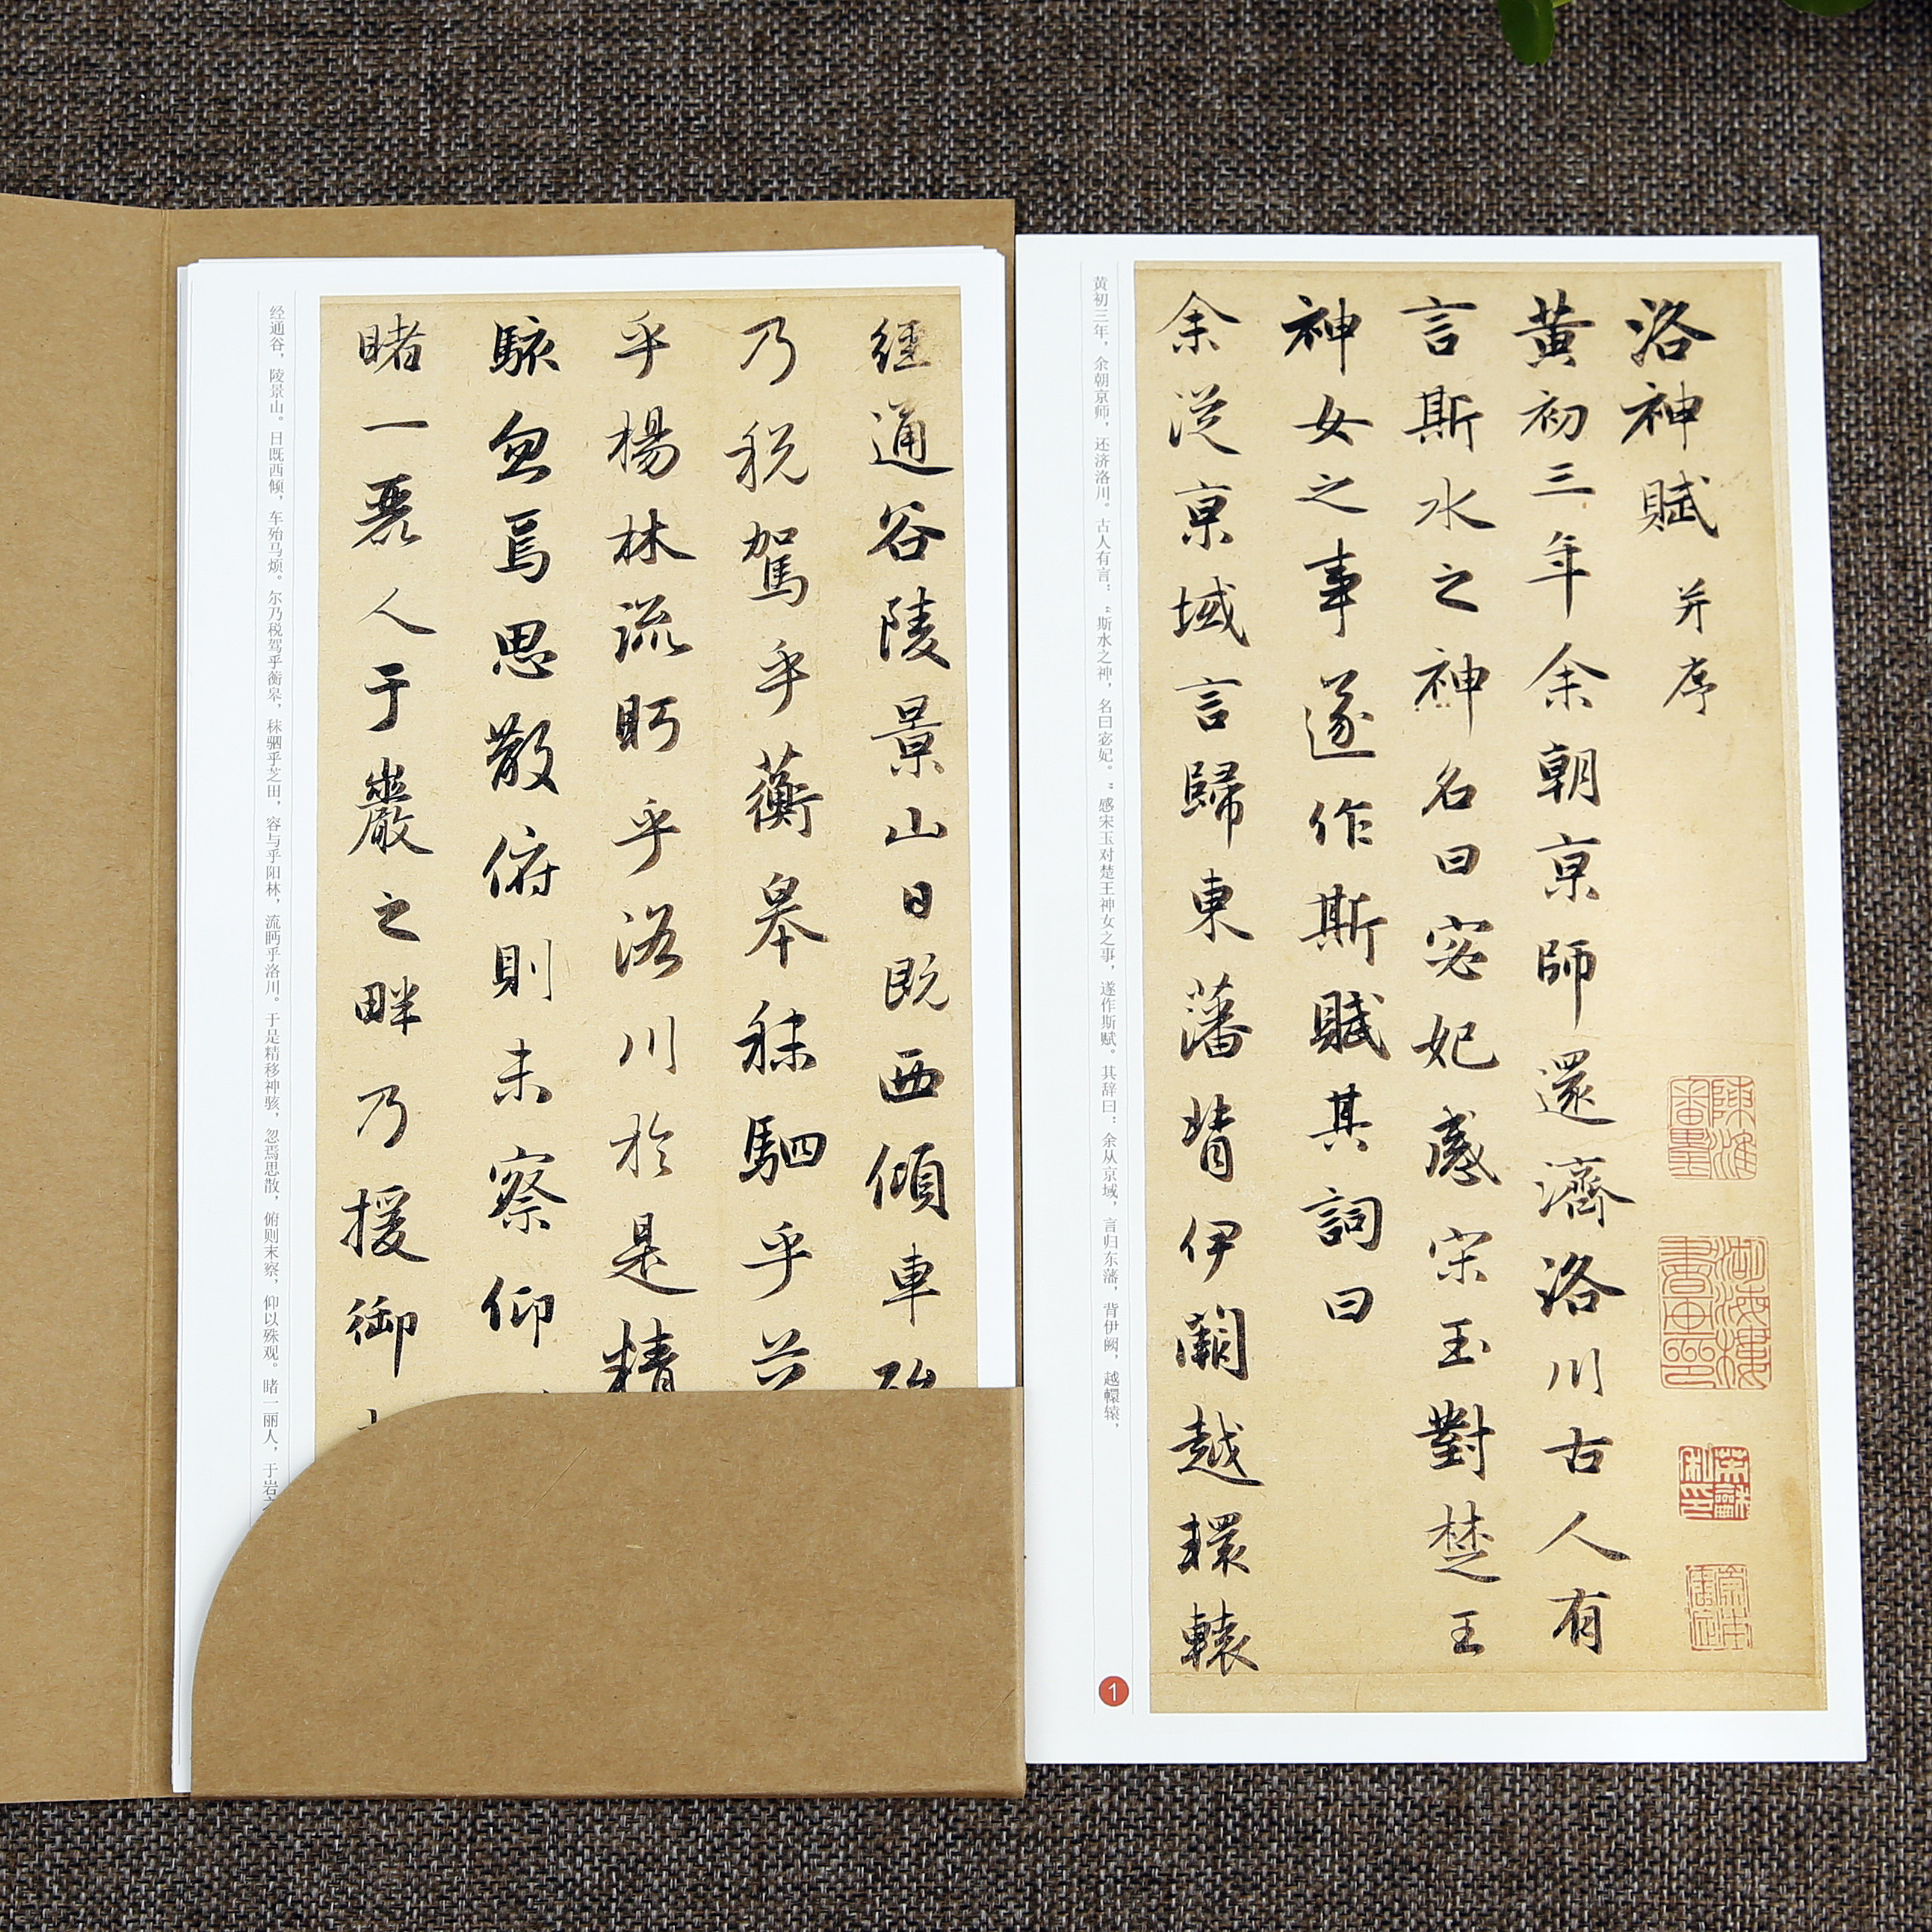 洛神賦 并序
黄初三年余朝京師還濟洛川古人有
言斯水之神名曰宓妃感宋玉對楚王
神女之事遂作斯賦其詞曰
余從京域言歸東藩背伊闕越轘轅
黄初三年，余朝京师，还济洛川。古人有言：“斯水之神，名曰宓妃。”感宋玉对楚王神女之事，遂作斯赋。其辞曰：余从京域，言归东藩，背伊阙，越轘辕，
1
經通谷陵景山日既西傾車殆
乃税駕乎蘅皋秣駟乎芝
乎楊林流眄乎洛川於是精
駭忽焉思散俯則未察仰
睹一麗人于巖之畔乃援御
经通谷，陵景山。日既西倾，车殆马烦。尔乃税驾乎蘅皋，秣驷乎芝田，容与乎阳林，流眄乎洛川。于是精移神骇，忽焉思散，俯则末察，仰以殊观。睹一丽人，于岩